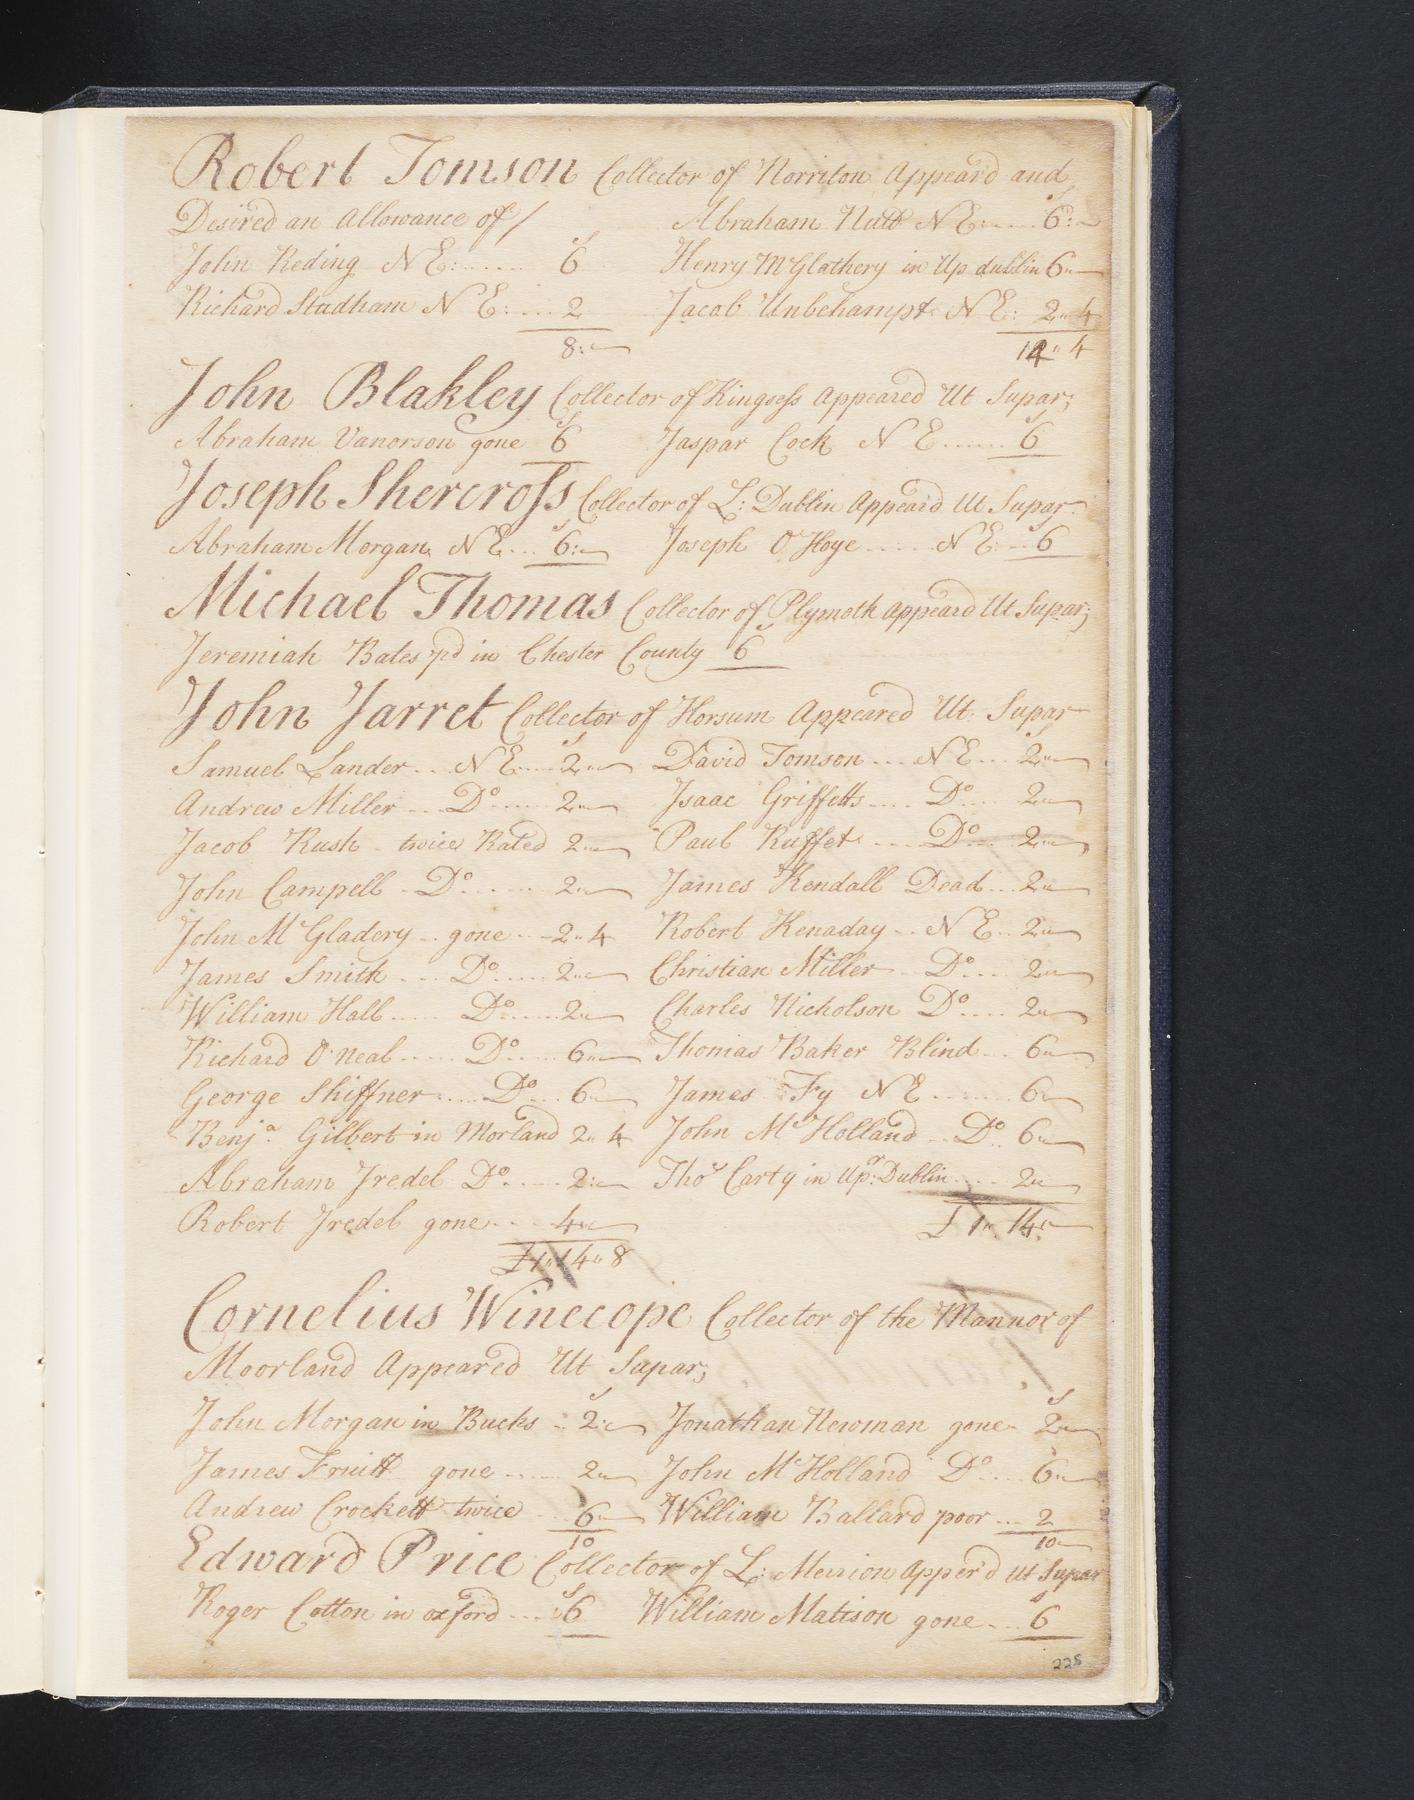 Robert Tomson Collector of Norriton Appeard and
Desired an Allowance of / Abraham Nutt N E: .... 6:
John Reding N E: ....... 6 Henry McGlathery in Up dublin 6"
Richard Studham N E: .... 2 Jacob Unbehampt N E: 2" 4
8: 14" 4
John Blakley Collector of Kingsess Appeared Ut Supar;
Abraham Vanorson gone 6 Jaspar Cock N E ...... 6
Joseph Shercross Collector of L: Dublin Appeard Ut Supar
Abraham Morgan N E ... 6: Joseph O'Hoye ..... N E ... 6
Michael Thomas Collector of Plymoth Appeard Ut Supar;
Jeremiah Bates pd in Chester County 6
John Jarret Collector of Horsum Appeared Ut Supar
Samuel Lander ... N E .... 2" David Tomson ... N E ... 2"
Andrew Miller ... Do ..... 2" Isaac Griffetts .... Do .... 2"
Jacob Rush - twice Rated 2" Paul Ruffet ..... Do .... 2"
John Campell - Do ...... 2" James Kendall Dead ... 2"
John McGladery .. gone ... 2" 4 Robert Kenaday .. N E .. 2"
James Smith ... Do ..... 2" Christian Miller .. Do .... 2"
William Hall ..... Do ..... 2" Charles Nicholson Do .... 2"
Richard O'Neal ..... Do .... 6" Thomas Baker Blind ... 6"
George Shiffner ..... Do ... 6" James Fy N E ....... 6"
Benja Gilbert in Morland 2" 4 John McHolland .. Do .. 6"
Abraham Iredel Do ..... 2: Thos Carty in Upr: Dublin ..... 2"
Robert Iredel gone .... 4" £ 1" 14"
£1" 14" 8
Cornelius Winecope Collector of the Mannor of
Moorland Appeared Ut Supar;
John Morgan in Bucks .. 2" Jonathan Newman gone 2"
James Fruitt gone ..... 2" John McHolland Do .... 6"
Andrew Crockett twice ... 6" William Ballard poor ... 2
10 10
Edward Price Collector of L: Merion Apper'd Ut Supar
Roger Cotton in oxford .... 6 William Matison gone ... 6
225